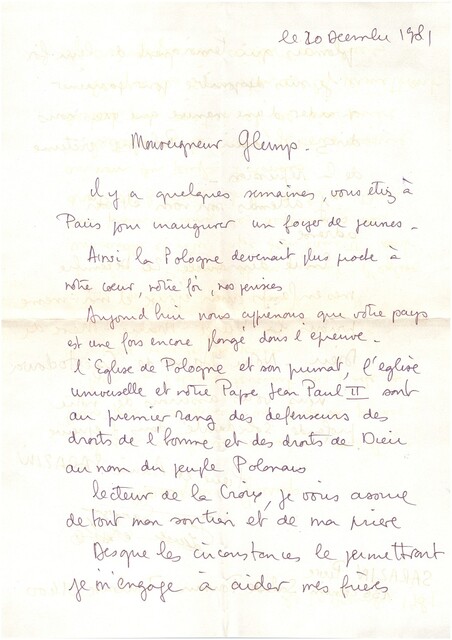 le 20 Decembre 1981
Monseigneur Glemp.
il y a quelques semaines, vous étiez à
Paris pour inaugurer un foyer de jeunes.
Ainsi la Pologne devenait plus proche à
notre cœur, notre foi, nos pensées
Aujourd'hui nous apprenons que votre pays
est une fois encore plongé dans l'épreuve.
l'Eglise de Pologne et son primat, l'église
universelle et notre Pape Jean Paul II sont
au premier rang des défenseurs des
droits de l'homme et des droits de Dieu
au nom du peuple Polonais
lecteur de la Croix, je vous assure
de tout mon soutien et de ma prière
Des que les circonstances le permettront
je m'engage à aider mes frères